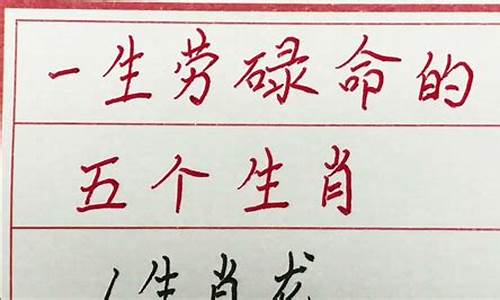 一生劳碌命的
五个生肖
1生肖龙